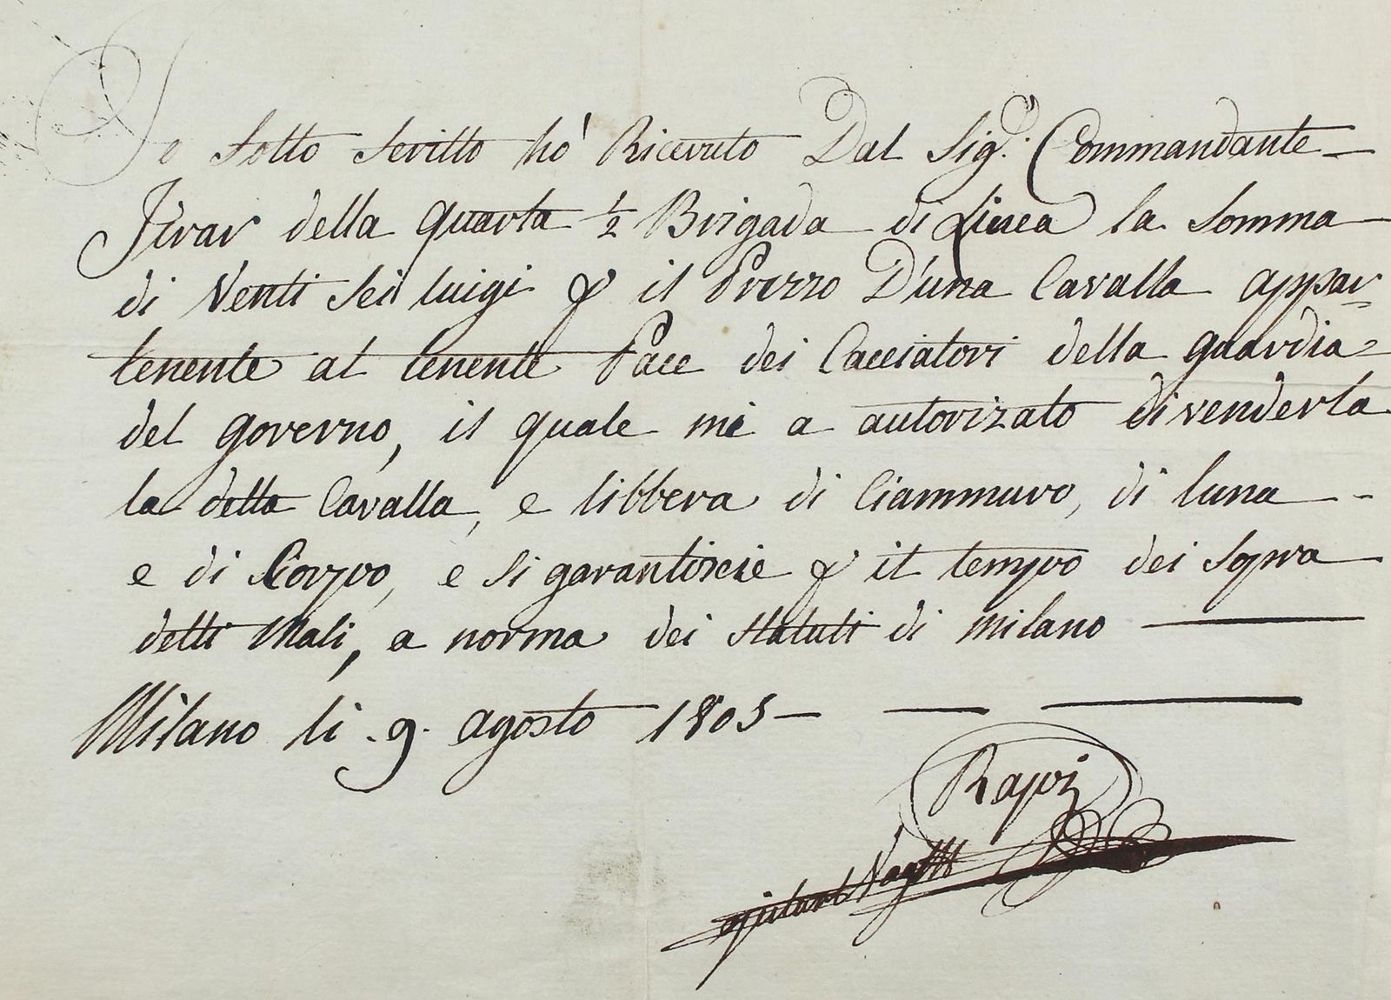 Io sotto scritto hò Ricevuto Dal Sig.r Commandante
Girar della quarta 1/2 Brigada di Linea la somma
di Venti sei luigi p il Prezzo D'una Cavalla appar=
tenente al tenente Pace dei Cacciatori della guardia=
del governo, il quale mi a autorizato di venderla
la detta Cavalla, e libbera di Ciammuro, di luna
e di Corpo, e si garantiscie p il tempo dei sopra
detti Mali, a norma dei statuti di Milano
Milano li .9. agosto 1805
Rapi